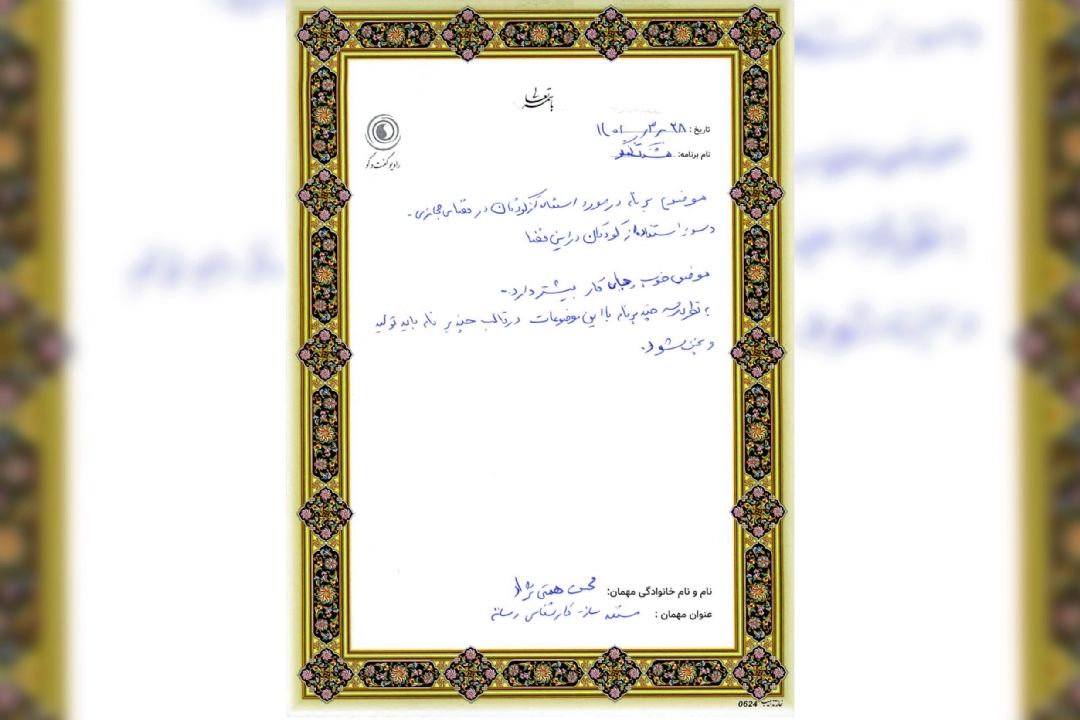 باسمه تعالی
رادیو گفت و گو
تاریخ: ۲۸
نام برنامه:
موضوع برنامه در مورد استفاده از کودکان در فضای مجازی.
و سوء استفاده از کودکان در این فضا
موضوع خوب و جای کار بیشتر دارد.
به نظر چند برنامه با این موضوعات در قالب چند برنامه باید تولید
و پخش شود.
نام و نام خانوادگی مهمان: محسن همتی نژاد
عنوان مهمان: مستند ساز - کارشناس رسانه
0624